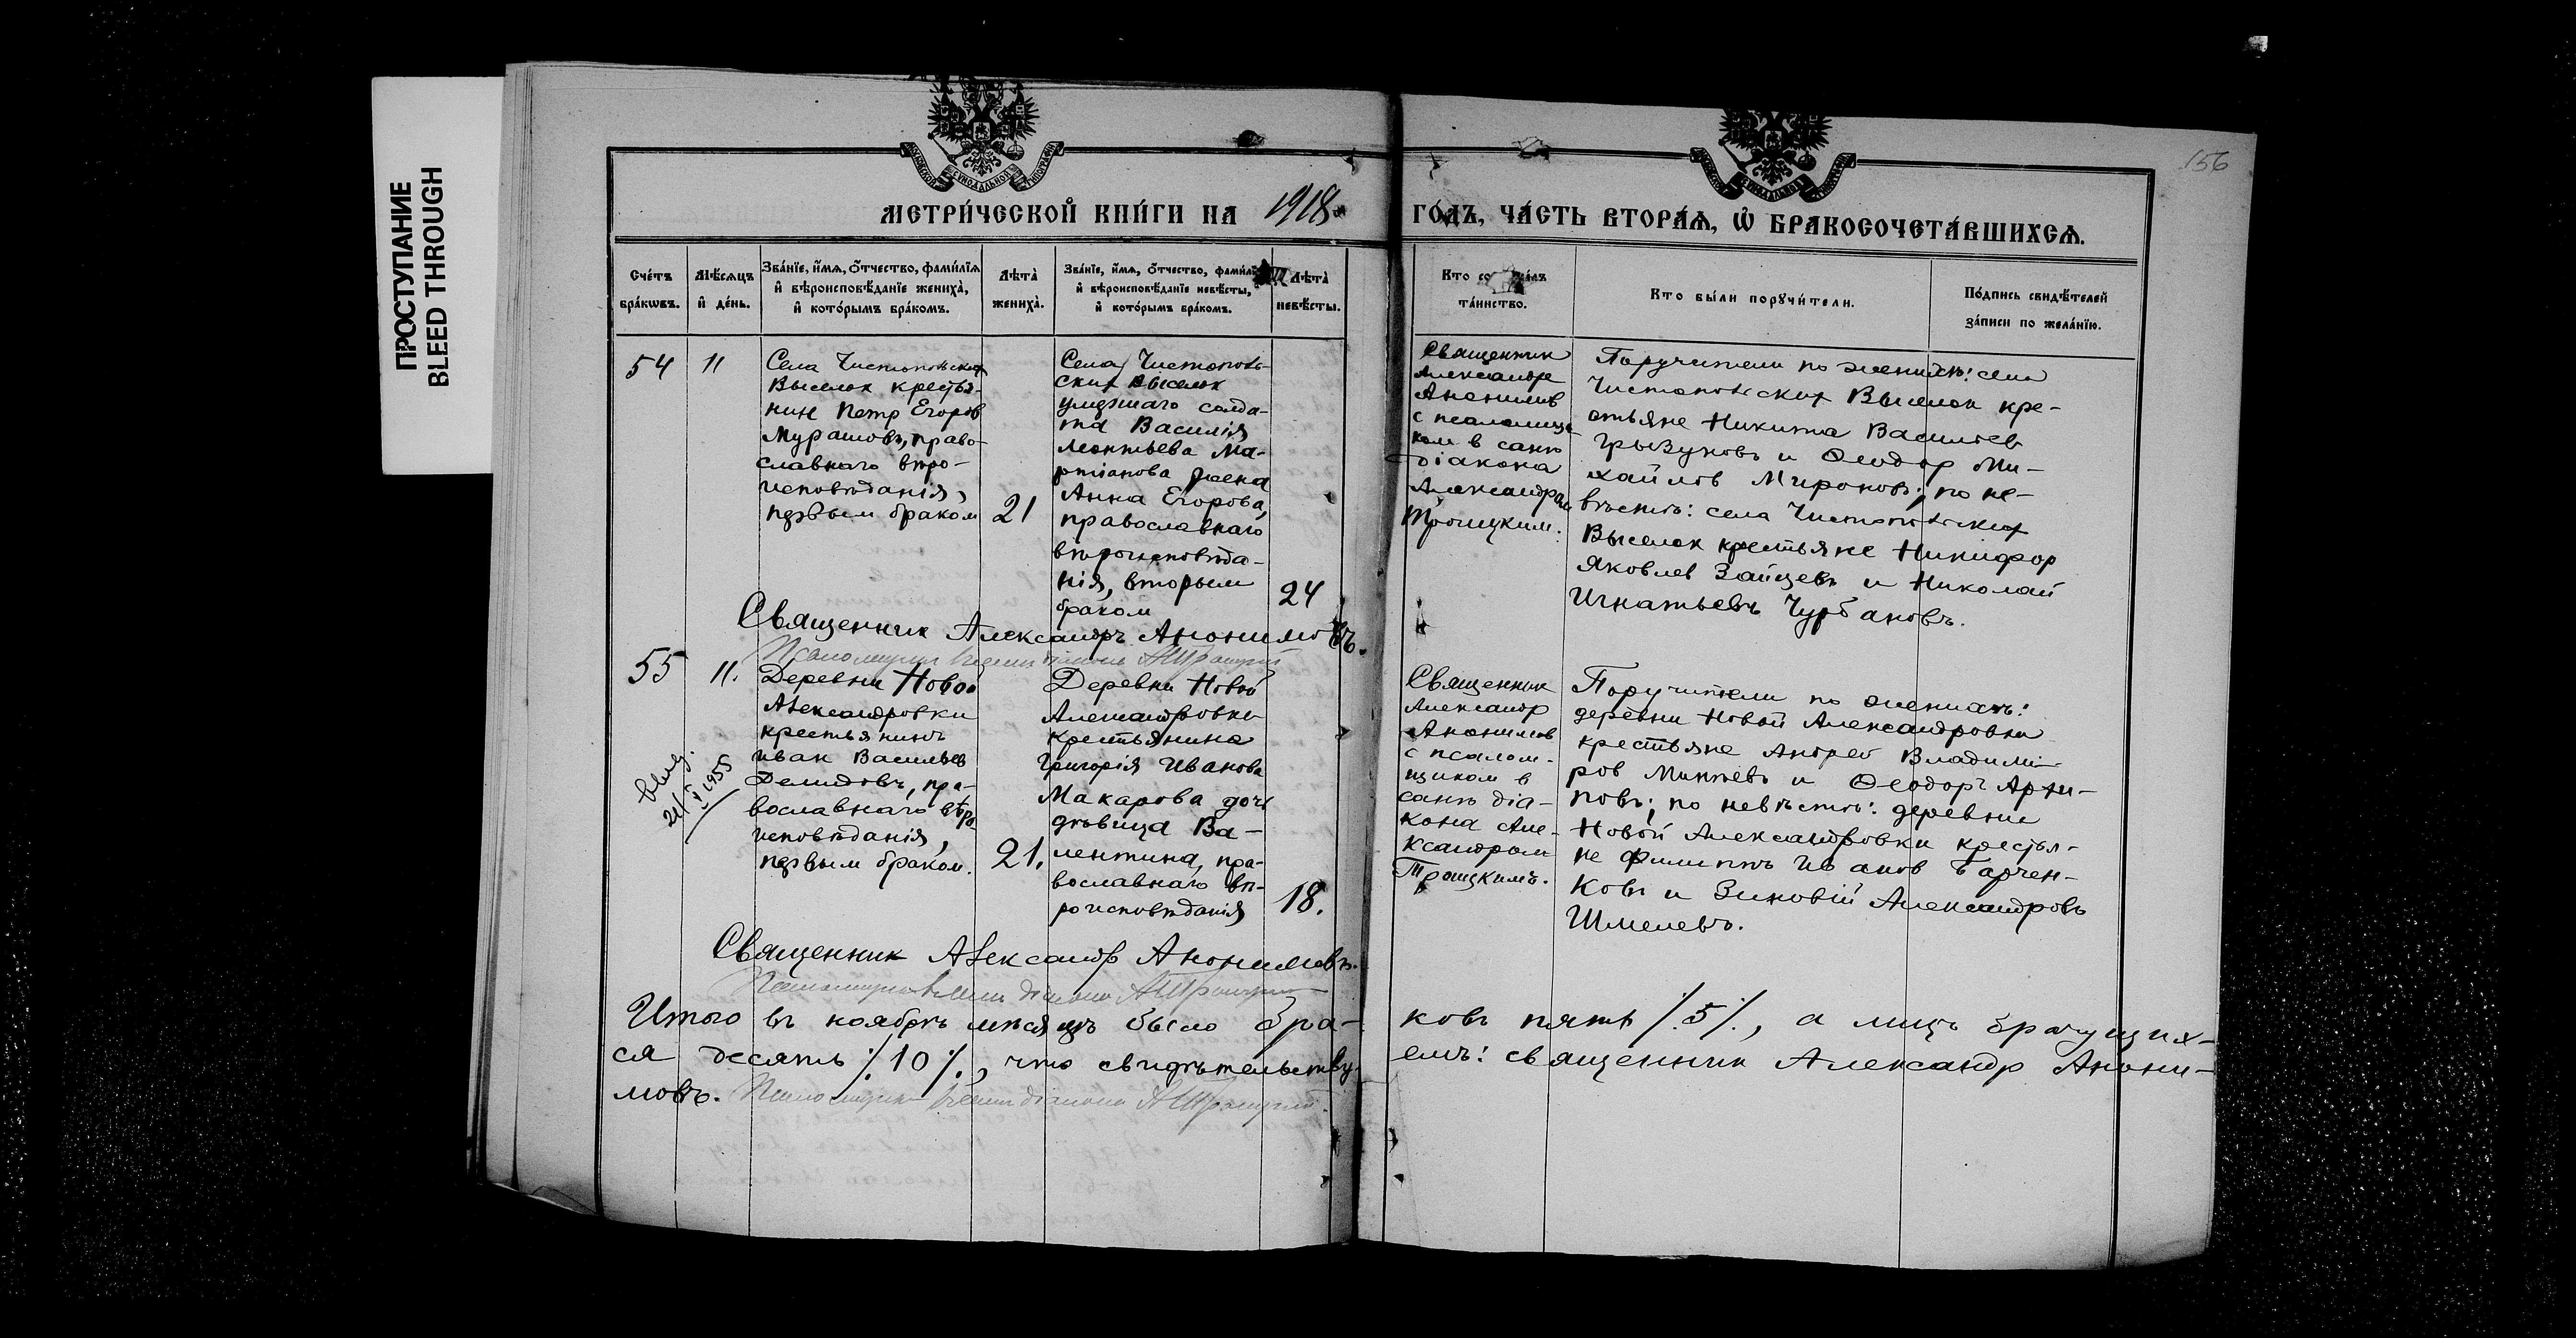 ПРОСТУПАНИЕ
BLEED THROUGH
156
МОСКОВСКОЙ СУНОДАЛЬНОЙ ТИПОГРАФІИ
МЕТРИ́ЧЕСКОЙ КНИ́ГИ НА 1918
ГО́ДЪ, ЧА́СТЬ ВТОРА́Я, Ѽ БРАКОСОЧЕТА́ВШИХСЯ.
Сче́тъ бра́кωвъ.
Мѣ́сяцъ и҆ де́нь.
Зва́нїе, и҆́мя, ѻ҆́тчество, фамилїя и҆ вѣроисповѣ́данїе жениха̀, и҆ кото́рымъ бра́комъ.
Лѣта̀ жениха̀.
Зва́нїе, и҆́мя, ѻ҆́тчество, фамилїя и҆ вѣроисповѣ́данїе невѣ́сты, и҆ кото́рымъ бра́комъ.
Лѣта̀ невѣ́сты.
Кто
та́инство.
Кто бы́ли порꙋчи́тели.
По́дпись свидѣ́телей за́писи по жела́нїю.
54
11
Села Чистопольских
Выселок крестья-
нин Петр Егоров
Мурашовъ, право-
славнаго вѣро-
исповѣданія,
первым браком
21
Села Чистополь-
ских Выселок
умершаго солда-
та Василія
Леонтьева Ма-
ртіанова жена
Анна Егорова,
православнаго
вѣроисповѣда-
нія, вторым
браком
24
Священник
Александр
Анонимов
с псаломщи-
ком в санѣ
діакона
Александром
Троицким.
Поручители по женихѣ: села
Чистопольских Выселок кре-
стьяне Никита Васильев
Грызуновъ и Ѳеодор Ми-
хайлов Мироновъ; по не-
вѣстѣ: села Чистопольских
Выселок крестьяне Никифор
Яковлев Зайцевъ и Николай
Игнатьевъ Чурбановъ.
Священник Александръ Анонимовъ.
Псаломщик діакон А Троицкій
55
11.
Деревни Новой
Александровки
крестьянинъ
Иван Васильев
Демидовъ, пра-
вославнаго вѣро
исповѣданія,
первым браком.
21.
21/V 1955
Деревни Новой
Александровки
крестьянина
Григорія Иванова
Макарова дочь
дѣвица Ва-
лентина, пра-
вославнаго вѣ-
роисповѣданія
18.
Священник
Александр
Анонимов
с псалом-
щиком в
санѣ діа-
кона Але-
ксандром
Троицкимъ.
Поручители по женихѣ:
деревни Новой Александровки
крестьяне Андрей Владими-
ров и Ѳеодоръ Архи-
повъ; по невѣстѣ: деревни
Новой Александровки крестья-
не Филиппъ Иванов Барчен-
ковъ и Зиновій Александровъ
Шмелевъ.
Священник Александр Анонимовъ.
Псаломщик діакон А Троицкій
Итого въ ноябрѣ мѣсяцѣ было бра-
ковъ пять /.5/., а лицъ брачущих-
ся десять /.10/., что свидѣтельству
емъ: священник Александр Анони-
мовъ. Псаломщик діакон А Троицкій.